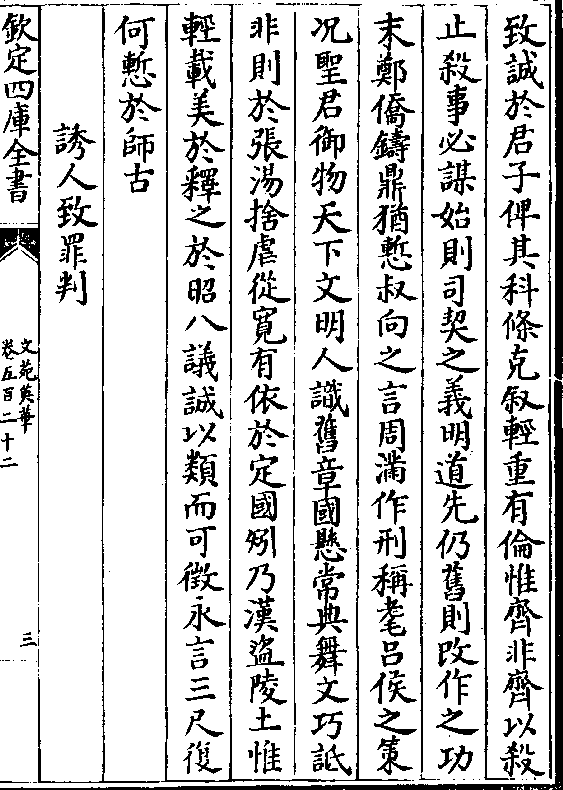 致誠於君子俾其科條克叙輕重有倫惟齊非齊以殺
止殺事必謀始則司契之義明道先仍舊則改作之功
末鄭僑鑄鼎猶慙叔向之言周滿作刑稱耄呂侯之策
况聖君御物天下文明人識舊章國懸常典舞文巧詆
非則於張湯捨虐從寬有依於定國矧乃漢盜陵土惟
輕載美於釋之於昭八議誠以類而可徵永言三尺復
何慙於師古
誘人致罪判
欽定四庫全書
文苑英華
卷五百二十二
三